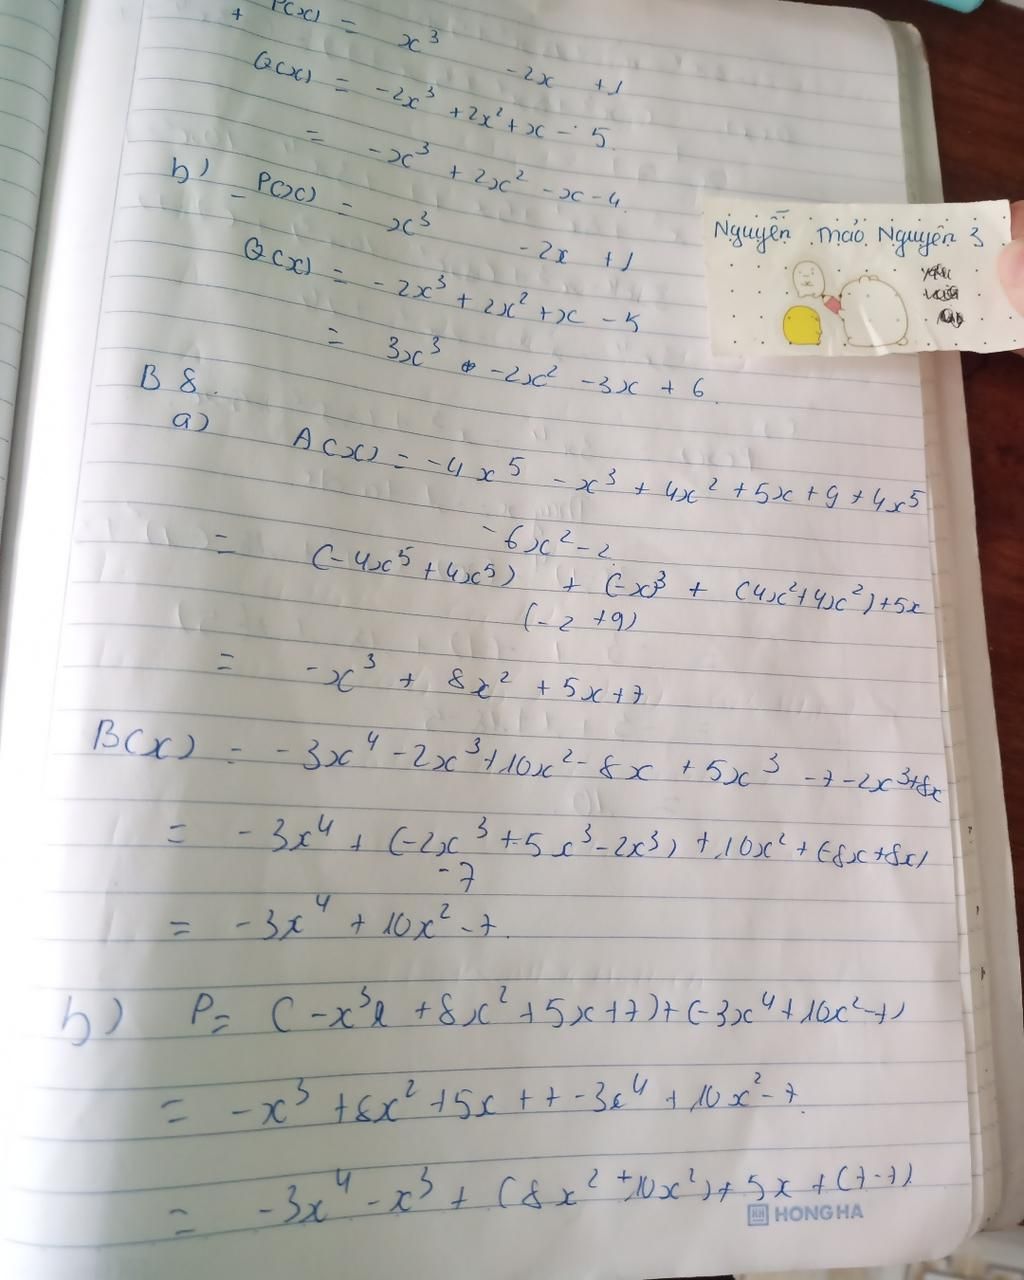 + P(x) = x³ -2x +1
Q(x) = -2x³ +2x² +x - 5.
= -x³ + 2x² -x -4.
b) - P(x) = x³ -2x +1
Q(x) = -2x³ + 2x² +x -5
= 3x³ -2x² -3x + 6.
Nguyễn Thảo Nguyên 3
B 8.
a) A(x) = -4x⁵ - x³ + 4x² + 5x + 9 + 4x⁵
-6x² -2
= (-4x⁵ + 4x⁵) + (-x)³ + (4x² + 4x²) + 5x
(-2 +9)
= -x³ + 8x² + 5x + 7
B(x) = -3x⁴ - 2x³ + 10x² - 8x + 5x³ -7 -2x³ + 8x
= -3x⁴ + (-2x³ + 5x³ - 2x³) + 10x² + (-8x + 8x)
-7
= -3x⁴ + 10x² -7.
b) P = (-x³ + 8x² + 5x + 7) + (-3x⁴ + 10x² -7)
= -x³ + 8x² + 5x + 7 - 3x⁴ + 10x² - 7.
= -3x⁴ - x³ + (8x² + 10x²) + 5x + (7-7)
HH HONG HA